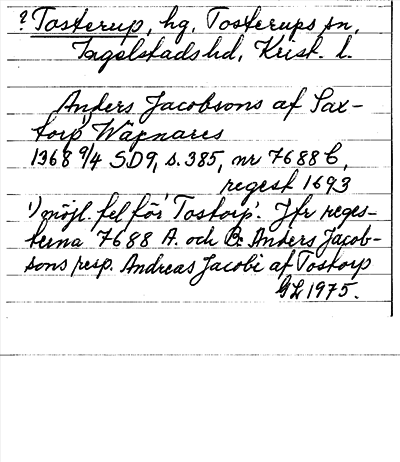 ? Tosterup, hg, Tosterups sn,
Ingelstads hd, Krist. l.
Anders Jacobsons af Sax-
torp¹⁾ Wäpnares
1368 9/4 SD9, s. 385, nr 7688 C,
regest 1693
¹⁾ möjl. fel för 'Tostorp'. Jfr reges-
terna 7688 A. och B. Anders Jacob-
sons resp. Andreas Jacobi af Tostorp
GL 1975.